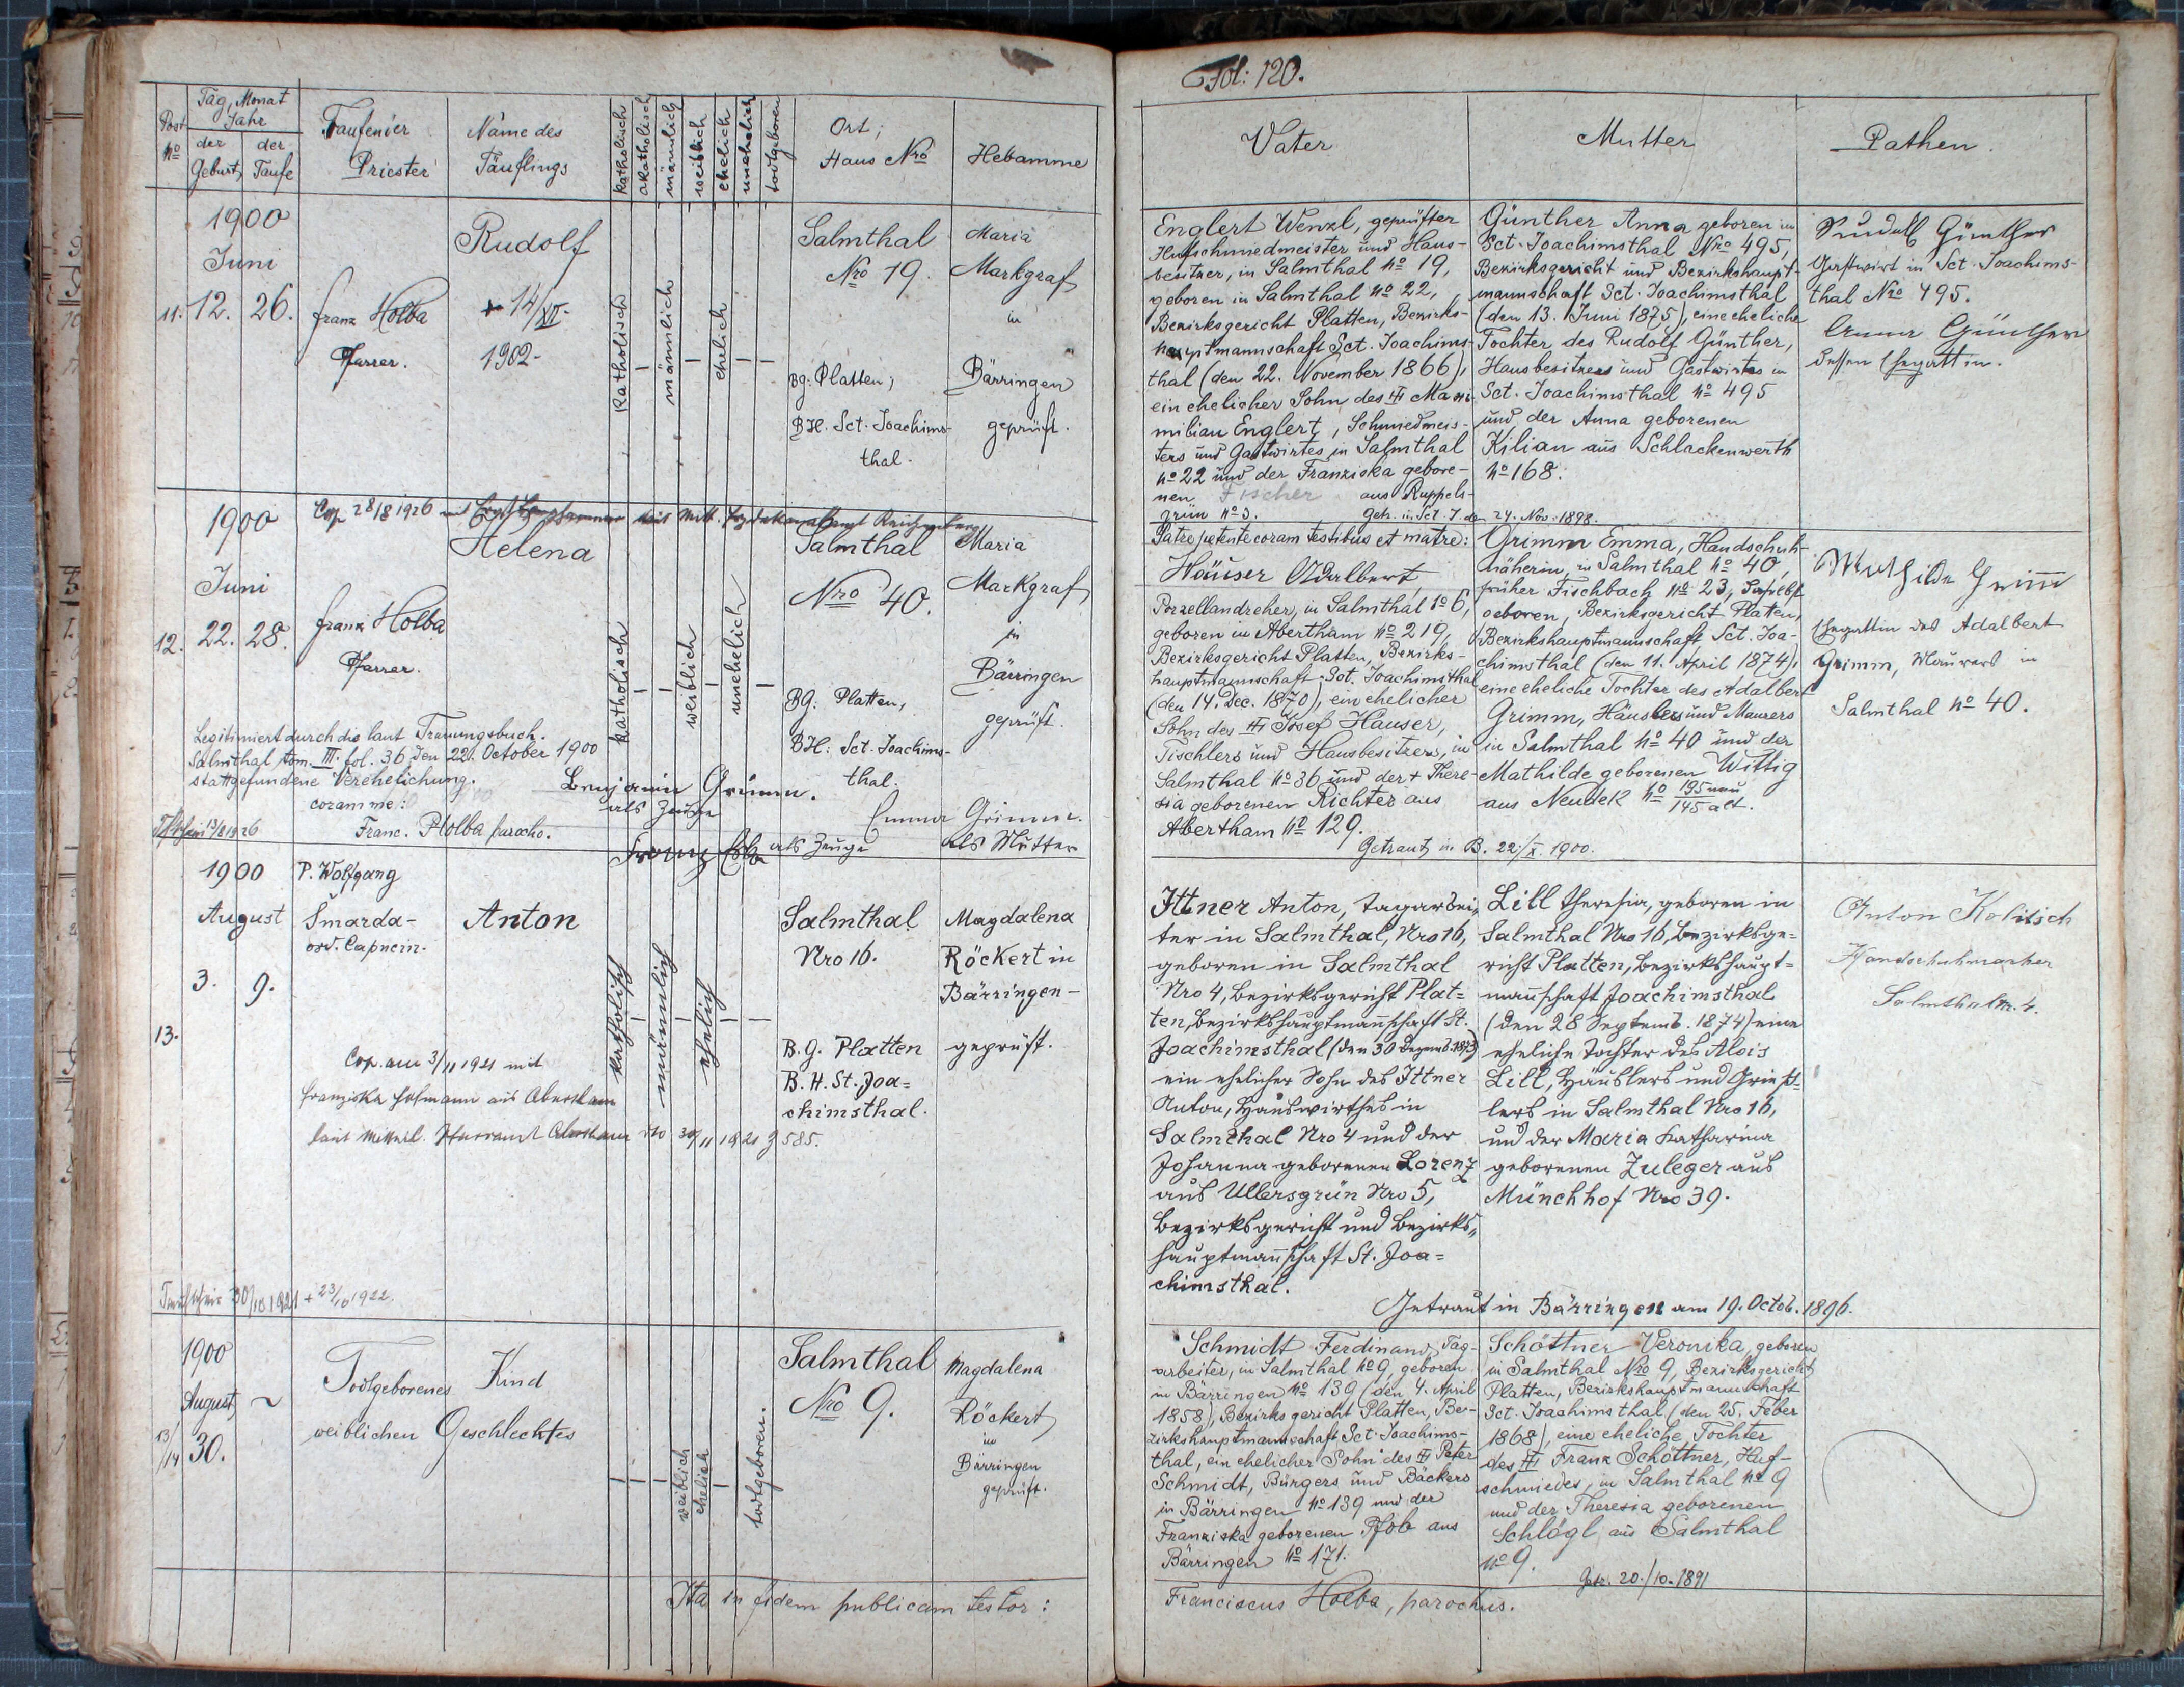 Fol: 120.
Post No
Tag, Monat
Jahr
der Geburt
der Taufe
Taufender
Priester
Name des
Täuflings
katholisch
akatholisch
männlich
weiblich
ehelich
unehelich
todtgeboren
Ort;
Haus Nro
Hebamme
Vater
Mutter
Pathen.
1900
Juni
11. 12. 26.
Franz Holba
Pfarrer.
Rudolf
+ 14/XII.
1902-
katholisch
männlich
ehelich
Salmthal
Nro 19.
BG: Platten;
BH. Sct. Joachims-
thal.
Maria
Markgraf
in
Bärringen
geprüft.
Englert Wenzl, geprüfter
Hufschmiedmeister und Haus-
besitzer, in Salmthal No 19,
geboren in Salmthal No 22,
Bezirksgericht Platten, Bezirks-
hauptmannschaft Sct. Joachims-
thal (den 22. November 1866),
ein ehelicher Sohn des # Maxi-
milian Englert, Schmiedmeis-
ters und Gastwirtes in Salmthal
No 22 und der Franziska gebore-
nen Fischer aus Ruppels-
grün No 3.
Getr. in Sct. J. den 24. Nov. 1898.
Günther Anna geboren in
Sct. Joachimsthal Nro 495,
Bezirksgericht und Bezirkshaupt-
mannschaft Sct. Joachimsthal
(den 13. Juni 1875), eine eheliche
Tochter des Rudolf Günther,
Hausbesitzers und Gastwirtes in
Sct. Joachimsthal No 495
und der Anna geborenen
Kilian aus Schlackenwerth
No 168.
Rudolf Günther
Gastwirt in Sct. Joachims-
thal Nro 495.
Anna Günther
dessen Ehegattin.
1900
Juni
12. 22. 28.
Cop 28/8 1926
Franz Holba
Pfarrer.
Helena
katholisch
weiblich
unehelich
Salmthal
Nro 40.
BG: Platten,
BH: Sct. Joachims-
thal.
Maria
Markgraf
in
Bärringen
geprüft.
Legitimiert durch die laut Trauungsbuch.
Salmthal tom. III. fol. 36 den 22. October 1900
stattgefundene Verehelichung.
coram me:
Franc. Holba parocho.
13/8 1926
Benjamin Grimm.
als Zeuge
Franz
als Zeuge
Emma Grimm.
als Mutter
Patre petente coram testibus et matre:
Häuser Adalbert,
Porzellandreher, in Salmthal No 6,
geboren in Abertham No 219,
Bezirksgericht Platten, Bezirks-
hauptmannschaft Sct. Joachimsthal
(den 14. Dec. 1870), ein ehelicher
Sohn des # Josef Häuser,
Tischlers und Hausbesitzers, in
Salmthal No 36 und der + There-
sia geborenen Richter aus
Abertham No 129.
Getraut in B. 22./X. 1900.
Grimm Emma, Handschuh-
näherin, in Salmthal No 40,
früher Fischbach No 23, daselbst
geboren, Bezirksgericht Platten,
Bezirkshauptmannschaft Sct. Joa-
chimsthal (den 11. April 1874),
eine eheliche Tochter des Adalbert
Grimm, Häuslers und Maurers
in Salmthal No 40 und der
Mathilde geborenen Wittig
aus Neudek No 195 neu
145 alt.
Mathilde Grimm
Ehegattin des Adalbert
Grimm, Maurers in
Salmthal No 40.
1900
August
13. 3. 9.
P. Wolfgang
Šmarda-
ord. Capucin.
Anton
katholisch
männlich
ehelich
Salmthal
Nro 16.
B. G. Platten
B. H. St. Joa=
chimsthal.
Magdalena
Röckert in
Bärringen-
geprüft.
Cop. am 3/11 1921 mit
Franziska Hofmann aus Abertham
laut Mitteil. Pfarramt Abertham 30/11 1921 585.
Taufschein 30/10 1921 + 23/10 1922.
Ittner Anton, Tagarbei-
ter in Salmthal, Nro 16,
geboren in Salmthal
Nro 4, Bezirksgericht Plat=
ten, Bezirkshauptmannschaft St.
Joachimsthal (den 30 Dezemb. 1873)
ein ehelicher Sohn des Ittner
Anton, Hauswirthes in
Salmthal Nro 4 und der
Johanna geborenen Lorenz
aus Ullersgrün Nro 5,
Bezirksgericht und Bezirks-
hauptmannschaft St. Joa=
chimsthal.
Getraut in Bärringen am 19. Octob. 1896.
Lill Theresia, geboren in
Salmthal Nro 16, Bezirksge=
richt Platten, Bezirkshaupt=
mannschaft Joachimsthal
(den 28 Septemb. 1874) eine
eheliche Tochter des Alois
Lill, Häuslers und
in Salmthal Nro 16,
und der Maria Katharina
geborenen Zuleger aus
Münchhof Nro 39.
Anton Kolitsch
Handschuhmacher
Salmthal No 4.
1900
August
13/14 30. ~
Todtgeborenes Kind
weiblichen Geschlechtes
weiblich
ehelich
todtgeboren.
Salmthal
Nro 9.
Magdalena
Röckert
in
Bärringen
geprüft.
Schmidt Ferdinand, Tag-
arbeiter, in Salmthal No 9, geboren
in Bärringen No 139 (den 4. April
1858), Bezirksgericht Platten, Be-
zirkshauptmannschaft Sct. Joachims-
thal, ein ehelicher Sohn des # Peter
Schmidt, Bürgers und Bäckers
in Bärringen No 139 und der
Franziska geborenen Pfob aus
Bärringen No 171.
Schöttner Veronika, geboren
in Salmthal Nro 9, Bezirksgericht
Platten, Bezirkshauptmannschaft
Sct. Joachimsthal (den 25. Feber
1868), eine eheliche Tochter
des # Franz Schöttner, Huf-
schmiedes, in Salmthal No 9
und der Theresia geborenen
Schlögl aus Salmthal
No 9.
Getr. 20./10. 1891
Ita in fidem publicam testor:
Franciscus Holba, parochus.